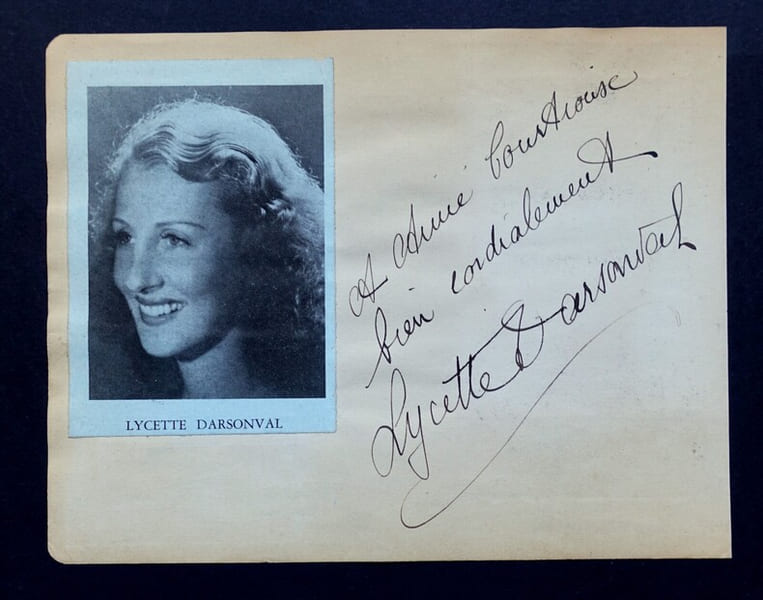 LYCETTE DARSONVAL
A Aimé Courtioise
bien cordialement
Lycette Darsonval